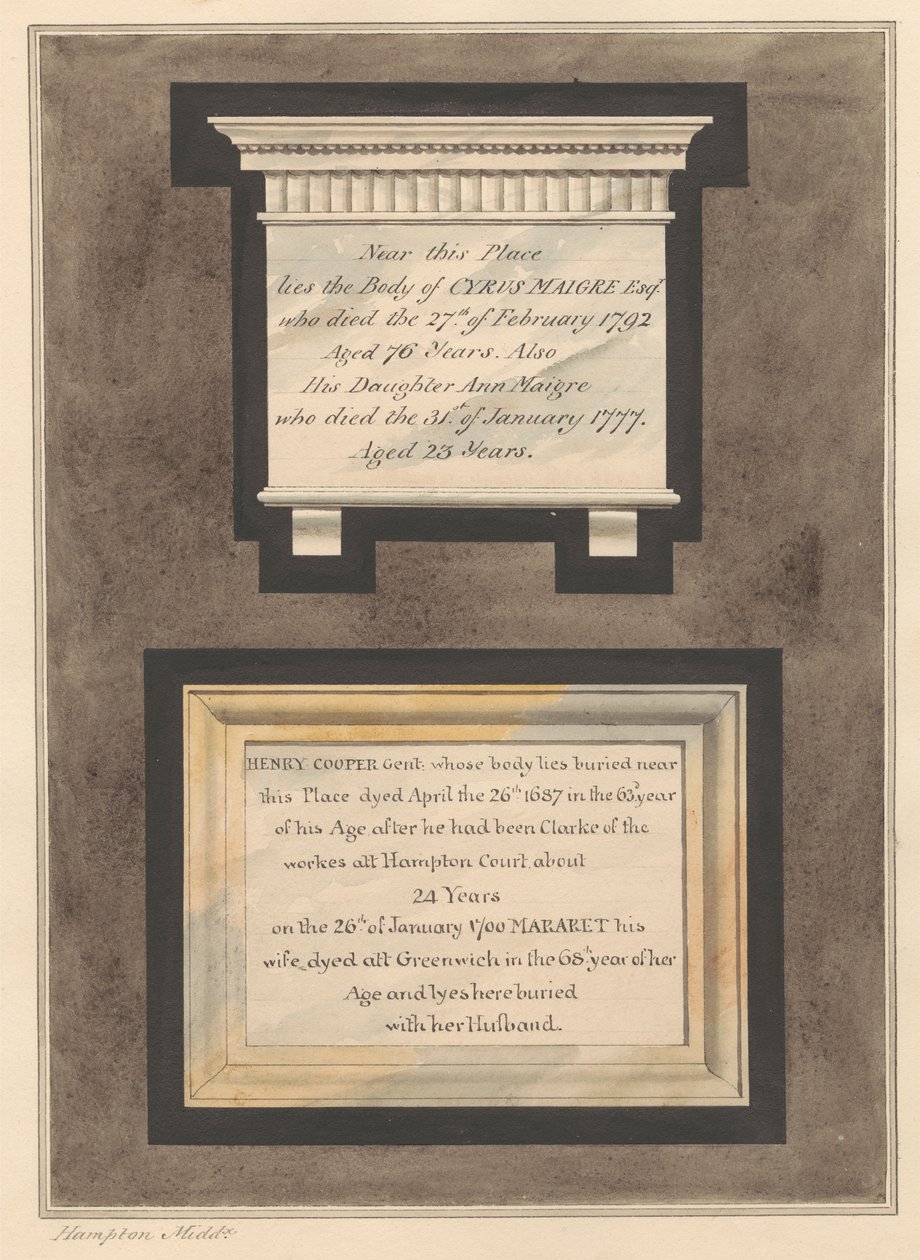 Near this Place
lies the Body of CYRUS MAIGRE Esqr.
who died the 27th. of February 1792
Aged 76 Years. Also
His Daughter Ann Maigre
who died the 31st. of January 1777.
Aged 23 Years.
HENRY COOPER Gent: whose body lies buried near
this Place dyed April the 26th 1687 in the 63d year
of his Age after he had been Clarke of the
workes att Hampton Court about
24 Years
on the 26th. of January 1700 MARARET his
wife dyed att Greenwich in the 68th. year of her
Age and lyes here buried
with her Huſband.
Hampton Middx.